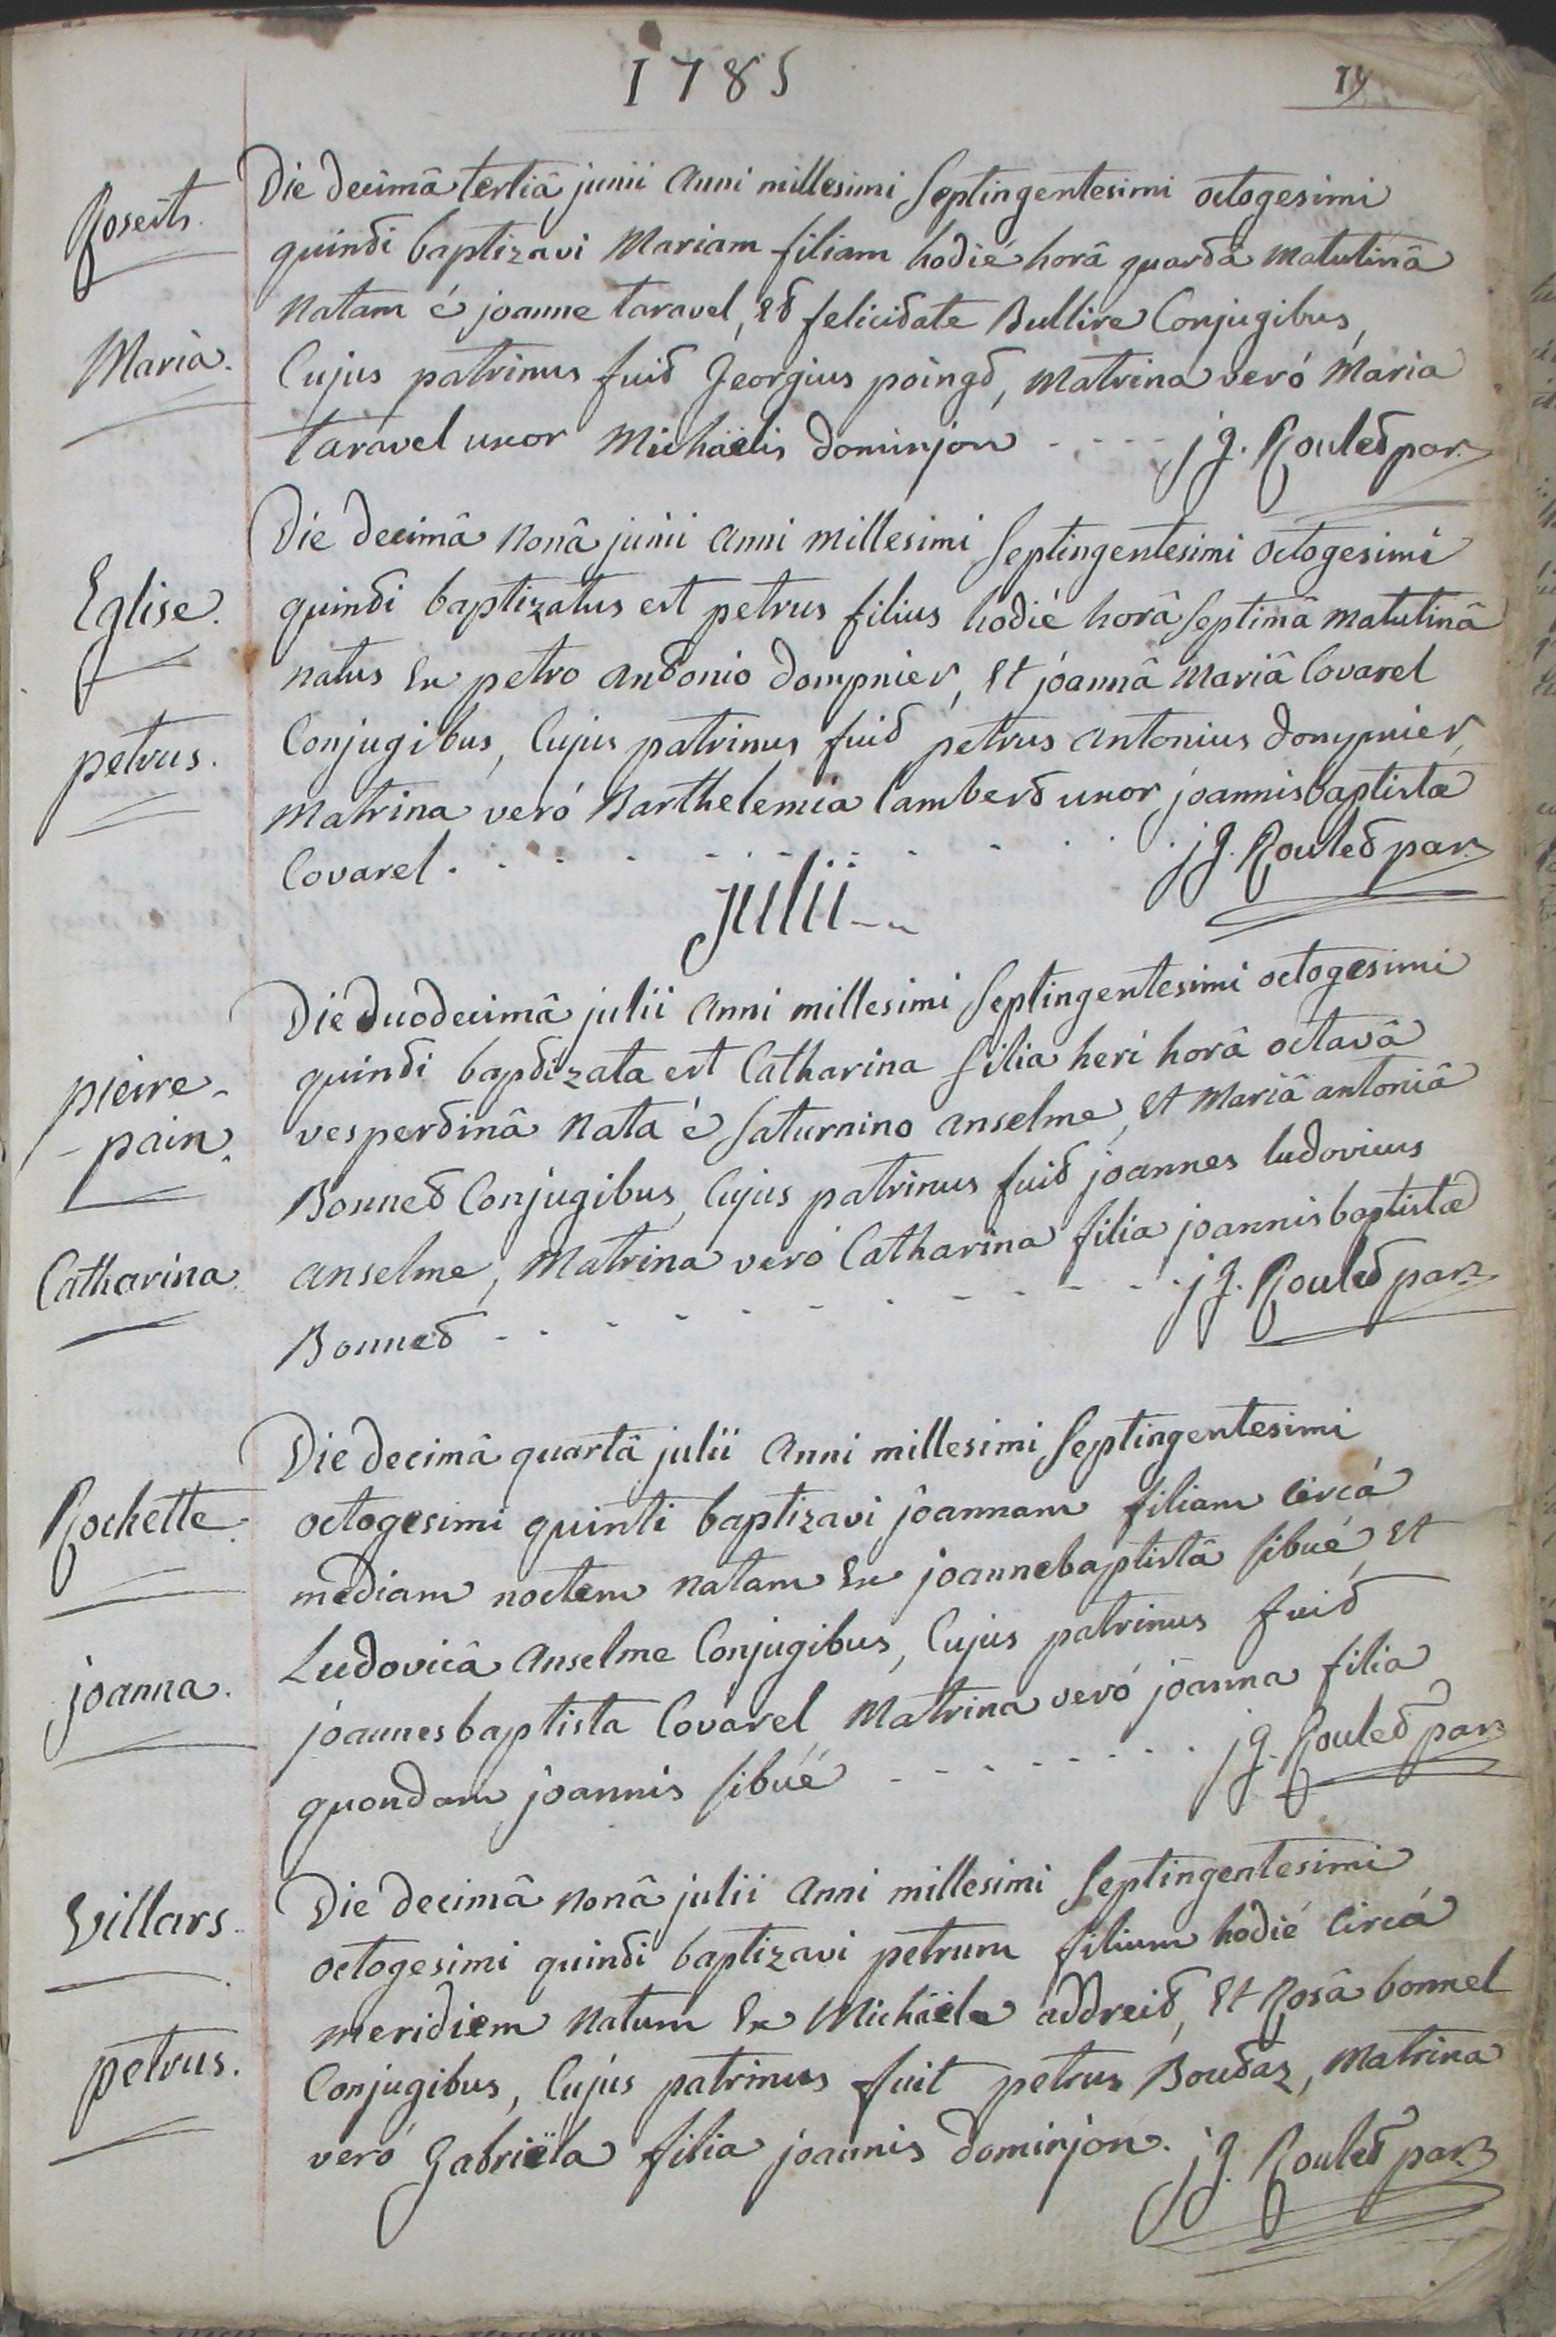 1785
Die decimâ tertiâ junii anni millesimi septingentesimi octogesimi
quinti baptizavi Mariam filiam hodié horâ quartâ matutinâ
natam é joanne taravel, et felicitate Bullire Conjugibus,
Cujus patrinus fuit georgius pöingt, matrina veró Maria
taravel uxor Michäelis dominjon - - - - j g. Roulet par.
Maria.
Die decimâ nonâ junii anni millesimi septingentesimi octogesimi
Eglise.
quinti baptizatus est petrus filius hodié horâ septimâ matutinâ
natus ex petro antonio dompnier, et jöannâ mariâ Covarel
petrus.
Conjugibus, Cujus patrinus fuit petrus antonius dompnier,
matrina veró Barthelemia lambert uxor joannisbaptistæ
Covarel. - - - - - - - - j g. Roulet par.
julii - -
Die duodecimâ julii anni millesimi septingentesimi octogesimi
pierre -
- pain.
quinti baptizata est Catharina filia heri horâ octavâ
vespertinâ nata é saturnino anselme, et mariâ antoniâ
Bonnet Conjugibus, Cujus patrinus fuit joannes ludovicus
Catharina.
anselme, matrina veró Catharina filia joannisbaptistæ
Bonnet - - - - - - - - - - j g. Roulet par.
Die decimâ quartâ julii anni millesimi septingentesimi
Rochette.
octogesimi quinti baptizavi jöannam filiam circá
mediam noctem natam ex joannebaptistâ sibué, et
Ludovicâ anselme Conjugibus, Cujus patrinus fuit
joanna.
jöannesbaptista Covarel, matrina veró jöanna filia
quondam joannis sibué - - - - - - - - j g. Roulet par.
Die decimâ nonâ julii anni millesimi septingentesimi
Villars.
octogesimi quinti baptizavi petrum filium hodié circá
meridiem natum ex Michäele addreit, et Rosâ bonnel
petrus.
Conjugibus, Cujus patrinus fuit petrus Boudaz, matrina
veró gabriëla filia joannis dominjon. j g. Roulet par.